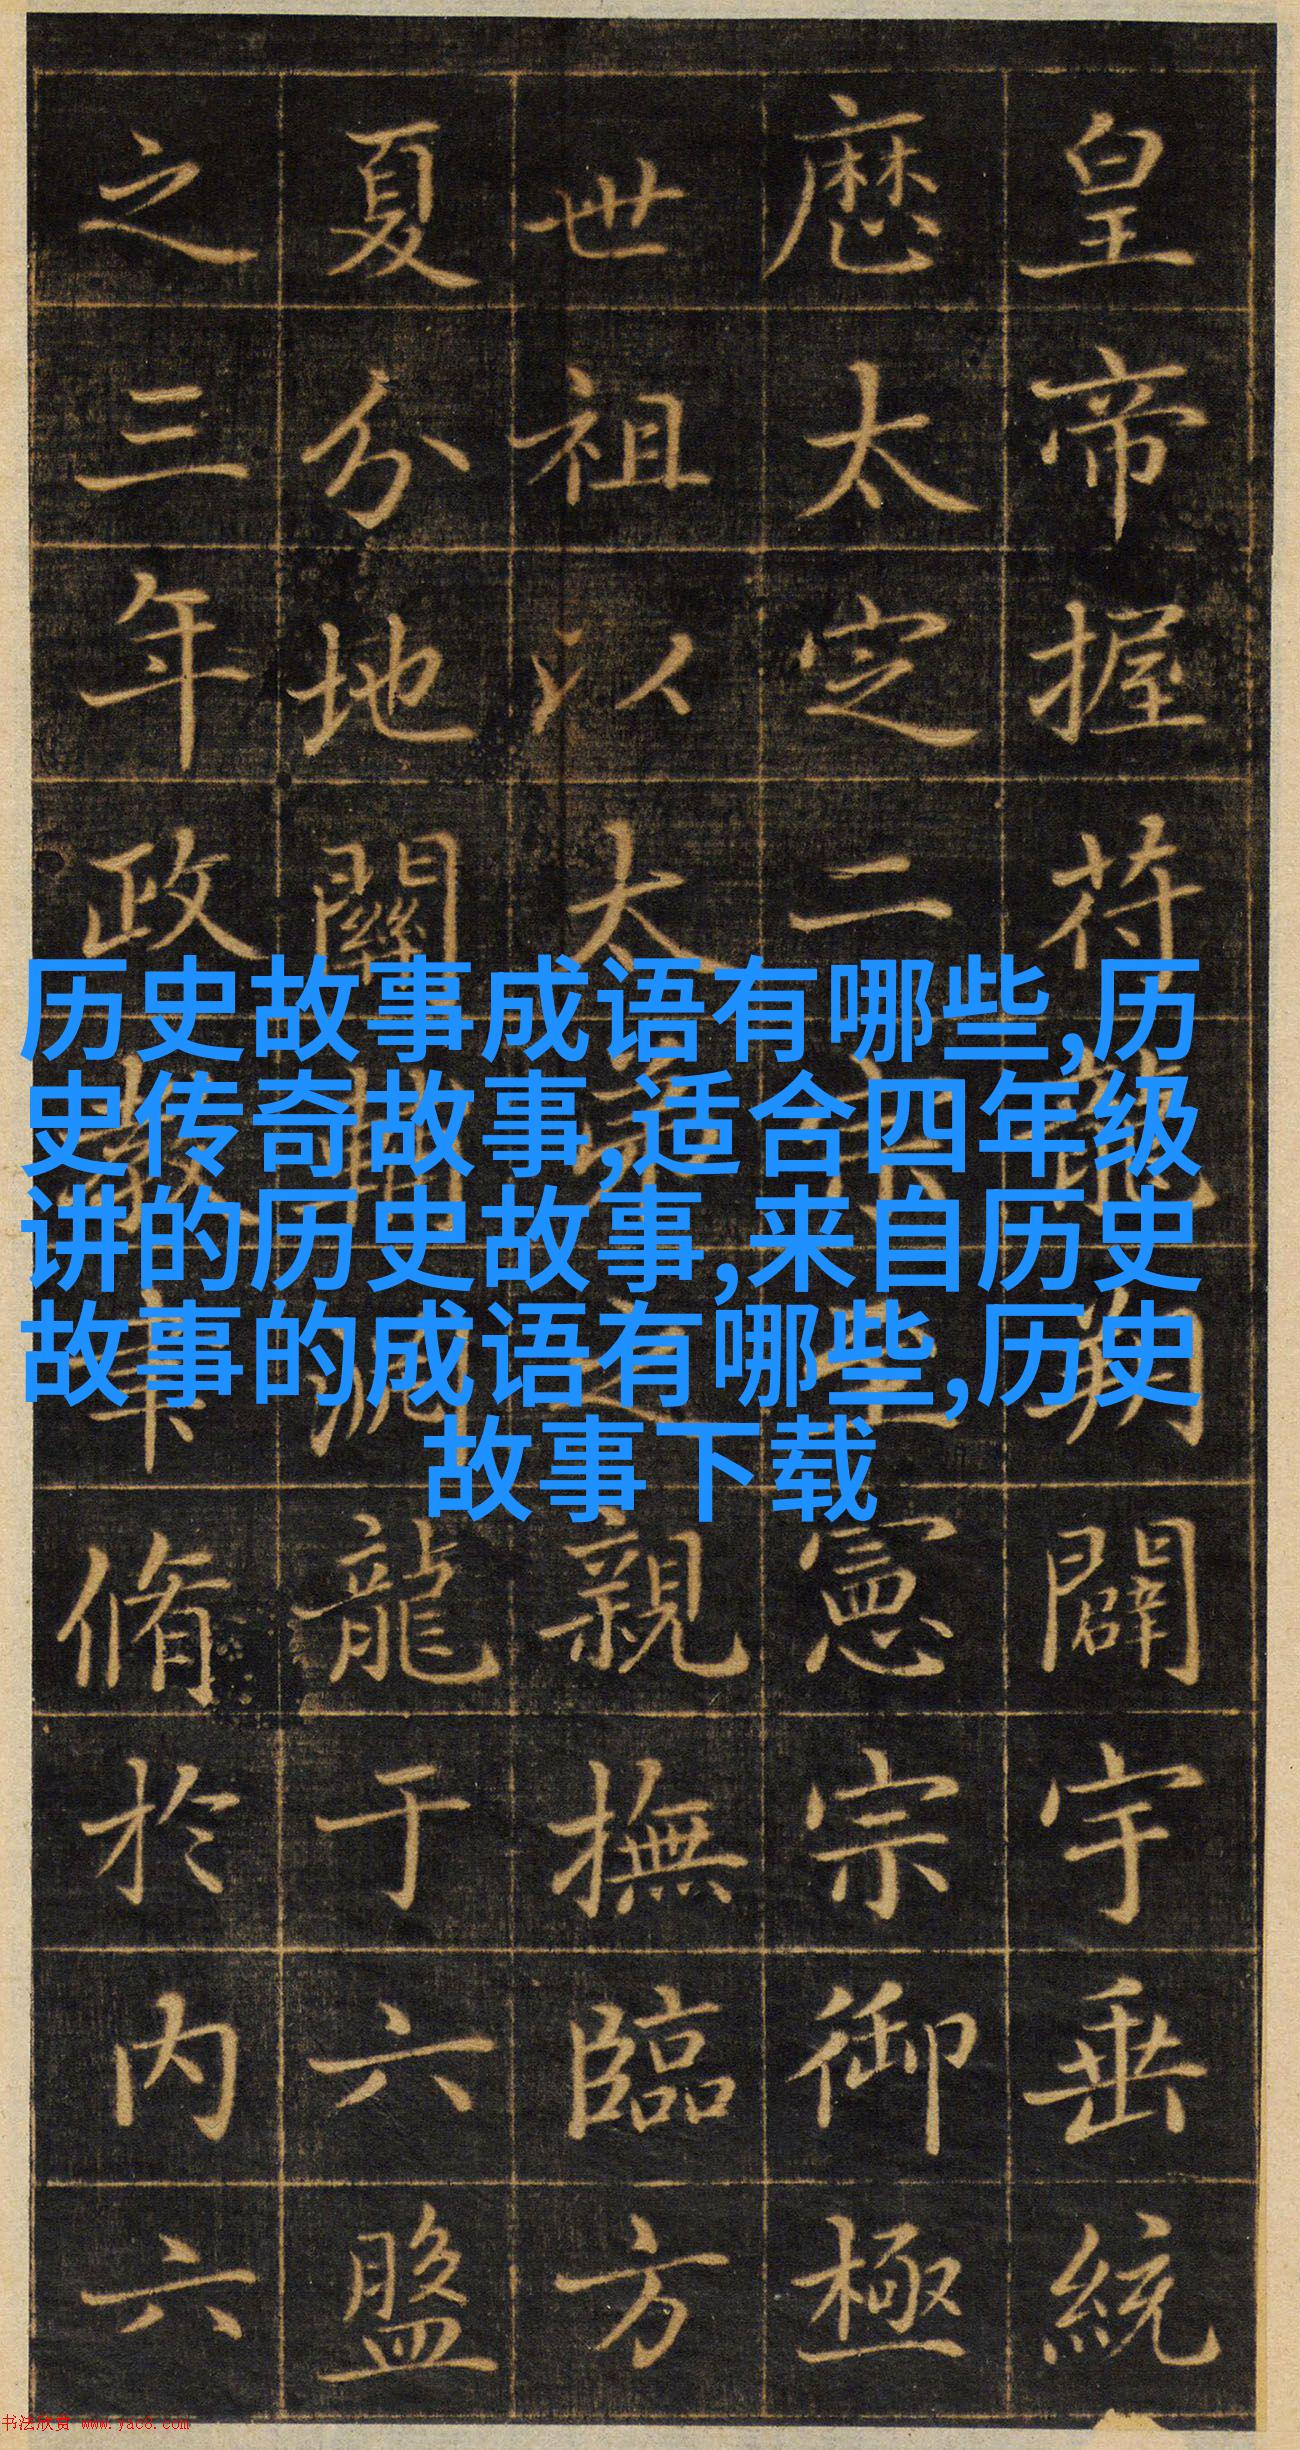 皇帝握符闢宇垂統
厯太定二憲宗御極
世祖以太親撫臨方
夏分地關龍于六盤
之三年政脩於内六
历史故事成语有哪些,历
史传奇故事,适合四年级
讲的历史故事,来自历史
故事的成语有哪些,历史
故事下载
书法欣赏 www.yac8.com